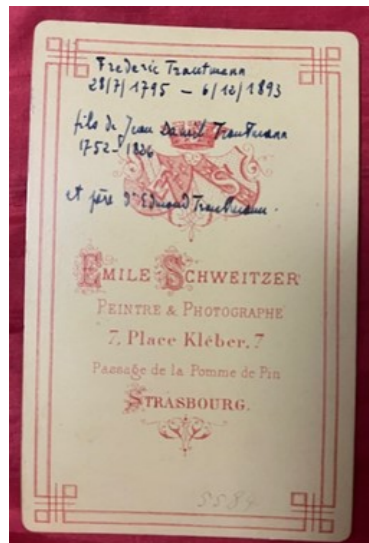 Frederic Trautmann
28/7/1795 – 6/12/1893
fils de Jean Daniel Trautmann
1752-1826
et père d'Edmond Trautmann.
EMILE SCHWEITZER
PEINTRE & PHOTOGRAPHE
7, Place Kléber, 7
Passage de la Pomme de Pin
STRASBOURG.
5584